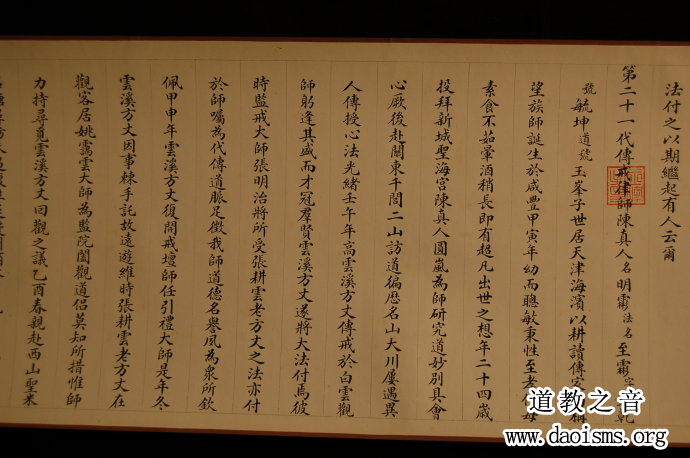 法付之以期繼起有人云爾
第二十一代傳戒律師陳真人名明霦法名至霦乾
號毓坤道號玉峯子世居天津海濱以耕讀傳家稱
望族師誕生於咸豐甲寅年幼而聰敏秉性至孝母
素食不茹葷酒稍長即有超凡出世之想年二十四歲
投拜新城聖海宮陳真人圓嵐為師研究道妙別具會
心厥後赴關東千閭二山訪道徧歷名山大川屢遇異
人傳授心法光緒壬午年高雲溪方丈傳戒於白雲觀
師躬逢其盛而才冠羣賢雲溪方丈遂將大法付焉彼
時監戒大師張明治將所受張耕雲老方丈之法亦付
於師囑為代傳道脈足徵我師道德名譽夙為衆所欽
佩甲申年雲溪方丈復開戒壇師任引禮大師是年冬
雲溪方丈因事棘手託故遠遊維時張耕雲老方丈在
觀客居姚靄雲大師為監院闔觀道侶莫知所措惟師
力持尋覓雲溪方丈回觀之議乙酉春親赴西山聖米
道教之音
www.daoisms.org